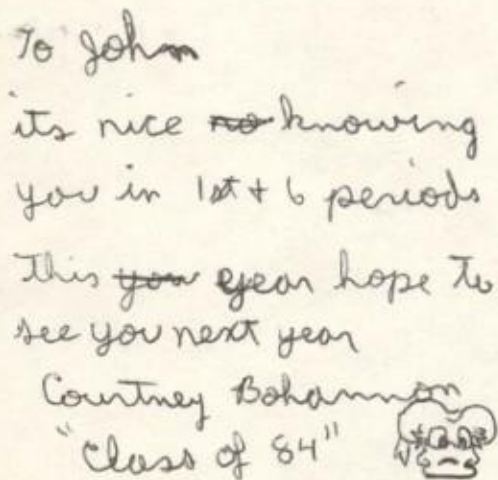 To John
its nice no knowing
you in 1st + 6 periods
This you year hope to
see you next year
Courtney Bohannon
"Class of 84"